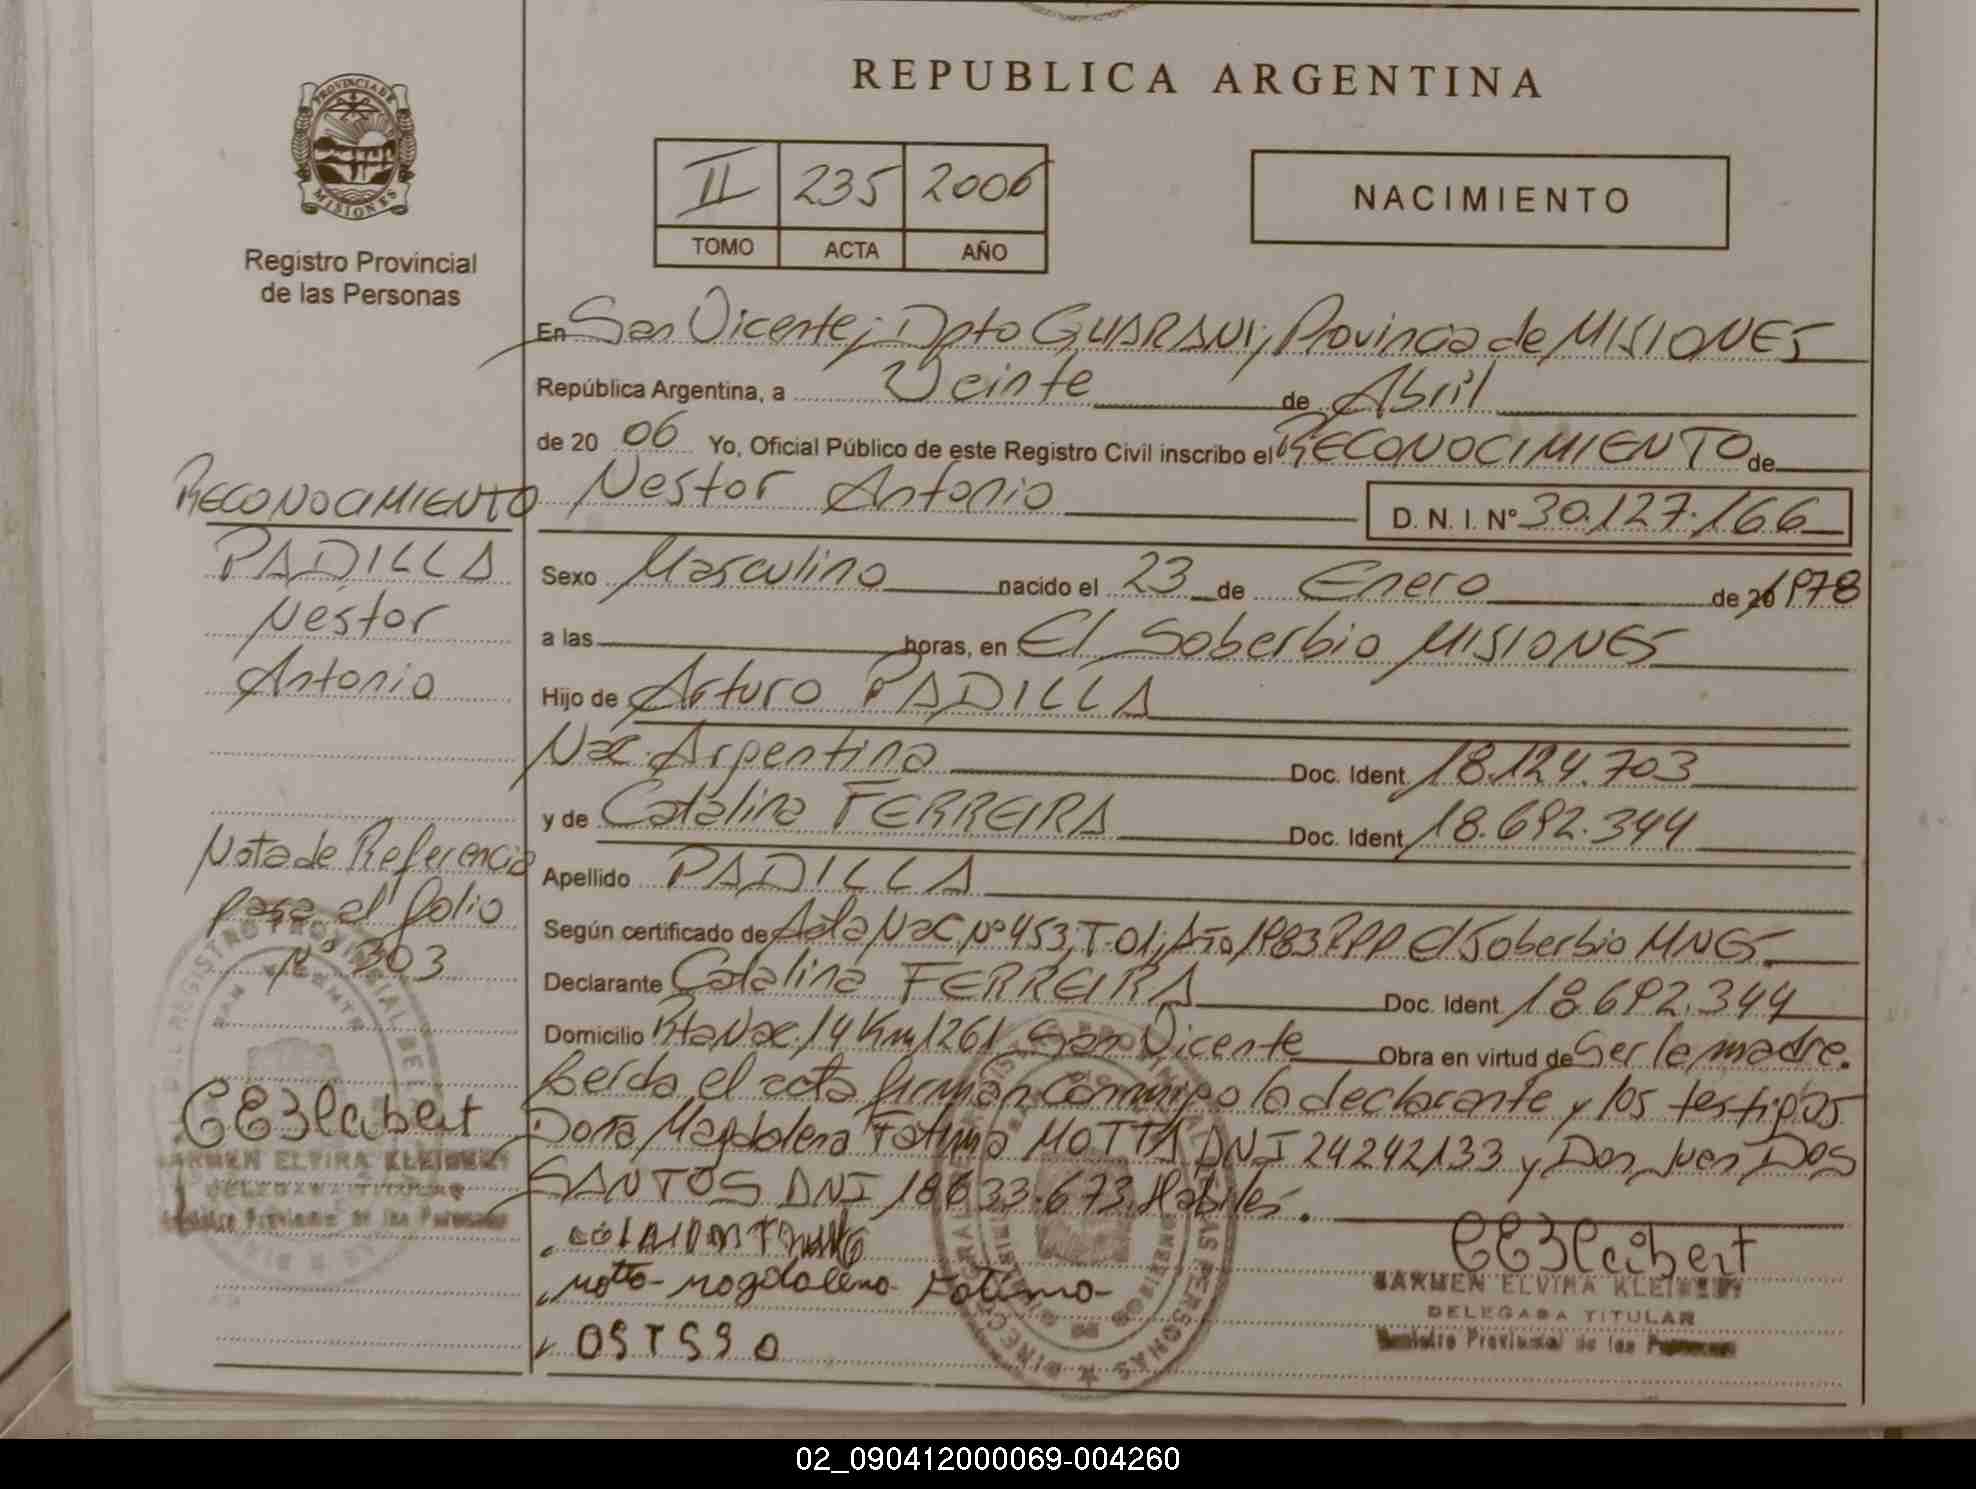 REPUBLICA ARGENTINA
PROVINCIA DE
MISIONES
Registro Provincial
de las Personas
II 235 2006
TOMO ACTA AÑO
NACIMIENTO
En San Vicente; Dpto GUARANI; Provincia de MISIONES
República Argentina, a Veinte de Abril
de 20 06 Yo, Oficial Público de este Registro Civil inscribo el RECONOCIMIENTO de
Nestor Antonio D. N. I. N° 30.127.166
Sexo Masculino nacido el 23 de Enero de 1978
a las horas, en El Soberbio MISIONES
Hijo de Arturo PADILLA
Nac. Argentina Doc. Ident. 18.124.703
y de Catalina FERREIRA Doc. Ident. 18.692.344
Apellido PADILLA
Según certificado de Acta Nac. N° 453, T-01; Año 1983 RPP El Soberbio MNES.
Declarante Catalina FERREIRA Doc. Ident. 18.692.344
Domicilio Rta Nac. 14 Km 1261 San Vicente Obra en virtud de Ser la madre.
Leida el acta firman conmigo la declarante y los testigos
Doña Magdalena Fatima MOTTA DNI 24242133 y Don Juan DOS
SANTOS DNI 18633.673. Habiles.
Motta Magdalena Fatima
CEKleibert
CARMEN ELVIRA KLEIBERT
DELEGADA TITULAR
Registro Provincial de las Personas
RECONOCIMIENTO
PADILLA
Nestor
Antonio
Nota de Referencia
pasa al folio
N° 303
CEKleibert
CARMEN ELVIRA KLEIBERT
DELEGADA TITULAR
Registro Provincial de las Personas
02_090412000069-004260